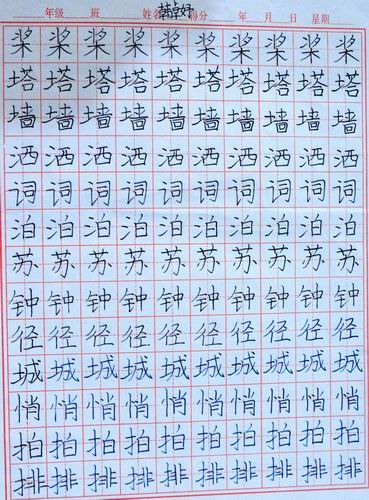 年级 班 姓名 韩卓妤 得分 年 月 日 星期
桨 桨 桨 桨 桨 桨 桨 桨 桨 桨
塔 塔 塔 塔 塔 塔 塔 塔 塔 塔
墙 墙 墙 墙 墙 墙 墙 墙 墙 墙
洒 洒 洒 洒 洒 洒 洒 洒 洒 洒
词 词 词 词 词 词 词 词 词 词
泊 泊 泊 泊 泊 泊 泊 泊 泊 泊
苏 苏 苏 苏 苏 苏 苏 苏 苏 苏
钟 钟 钟 钟 钟 钟 钟 钟 钟 钟
径 径 径 径 径 径 径 径 径 径
城 城 城 城 城 城 城 城 城 城
悄 悄 悄 悄 悄 悄 悄 悄 悄 悄
拍 拍 拍 拍 拍 拍 拍 拍 拍 拍
排 排 排 排 排 排 排 排 排 排